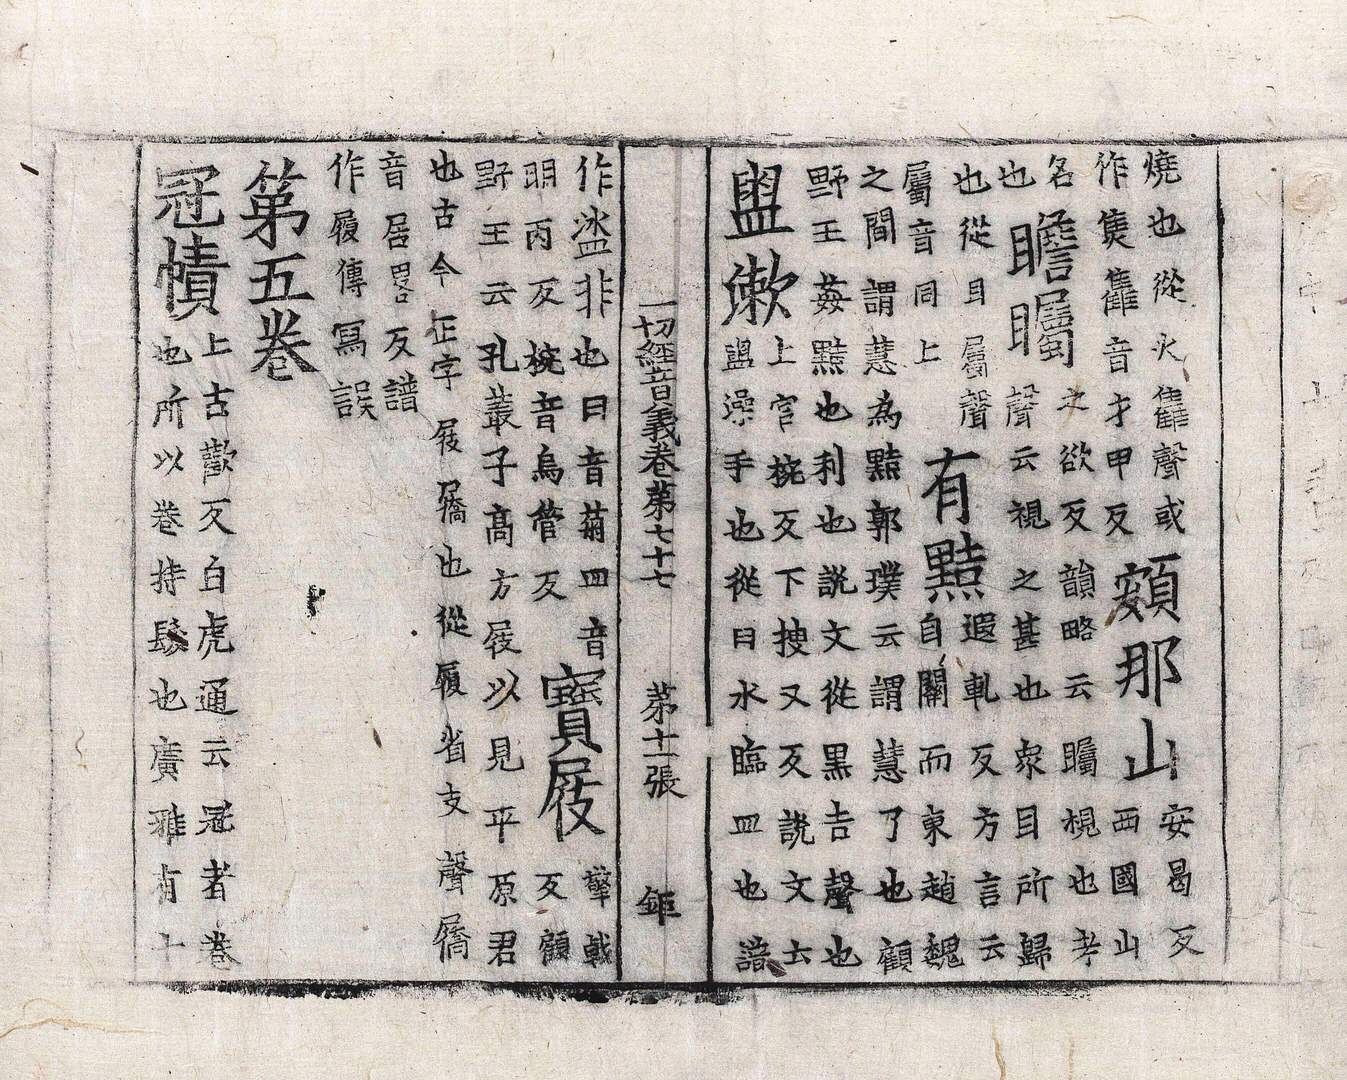 燒也從火雥聲或
作焦雥音才甲反
頞那山
安曷反
西國山
名
瞻矚
之欲反韻略云矚視也考
聲云視之甚也衆目所歸
也從目屬聲
屬音同上
有黠
遐軋反方言云
自關而東趙魏
之間謂慧為黠郭璞云謂慧了也顧
野王姦黠也利也說文從黒吉聲也
盥漱
上官椀反下搜又反說文云
盥澡手也從臼水臨皿也譜
一切經音義卷第七十七
第十一張
鉅
作盜非也臼音匊皿音
明丙反椀音烏管反
寶屐
擎戟
反顧
野王云孔叢子高方屐以見平原君
也古今正字屐屩也從履省支聲屩
音居畧反譜
作履傳寫誤
第五卷
冠幘
上古歡反白虎通云冠者卷
也所以卷持髮也廣雅有十